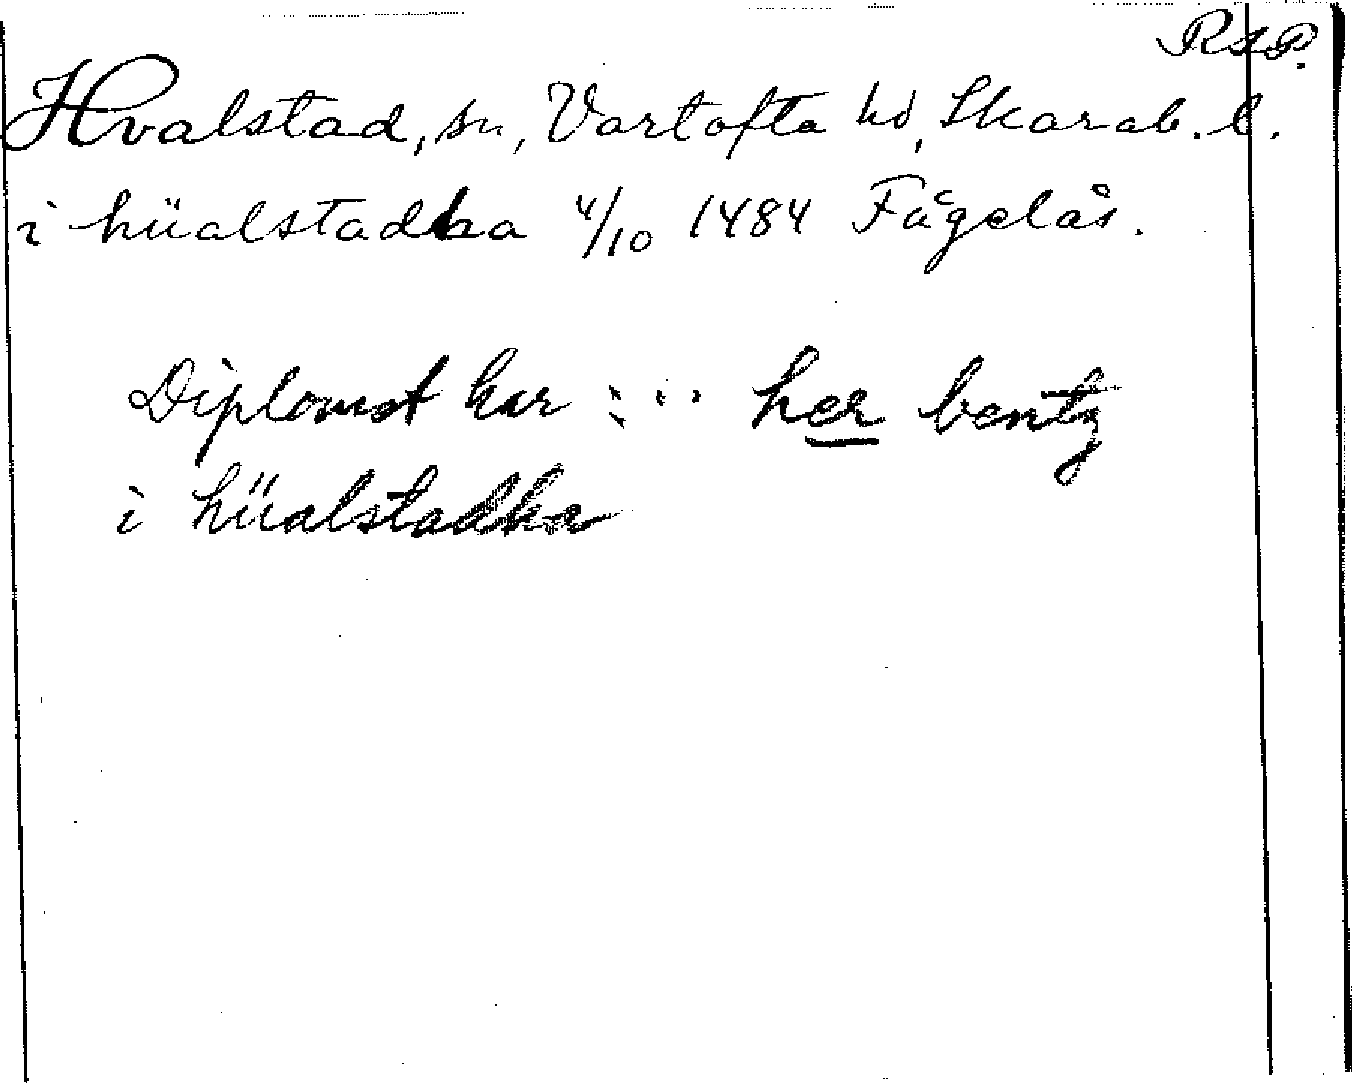 RAP.
Hvalstad, sn, Vartofta hd, Skarab. l.
i hüalstadha 4/10 1484 Fågelås.
Diplomet har : ·· her bentz
i hüalstadha